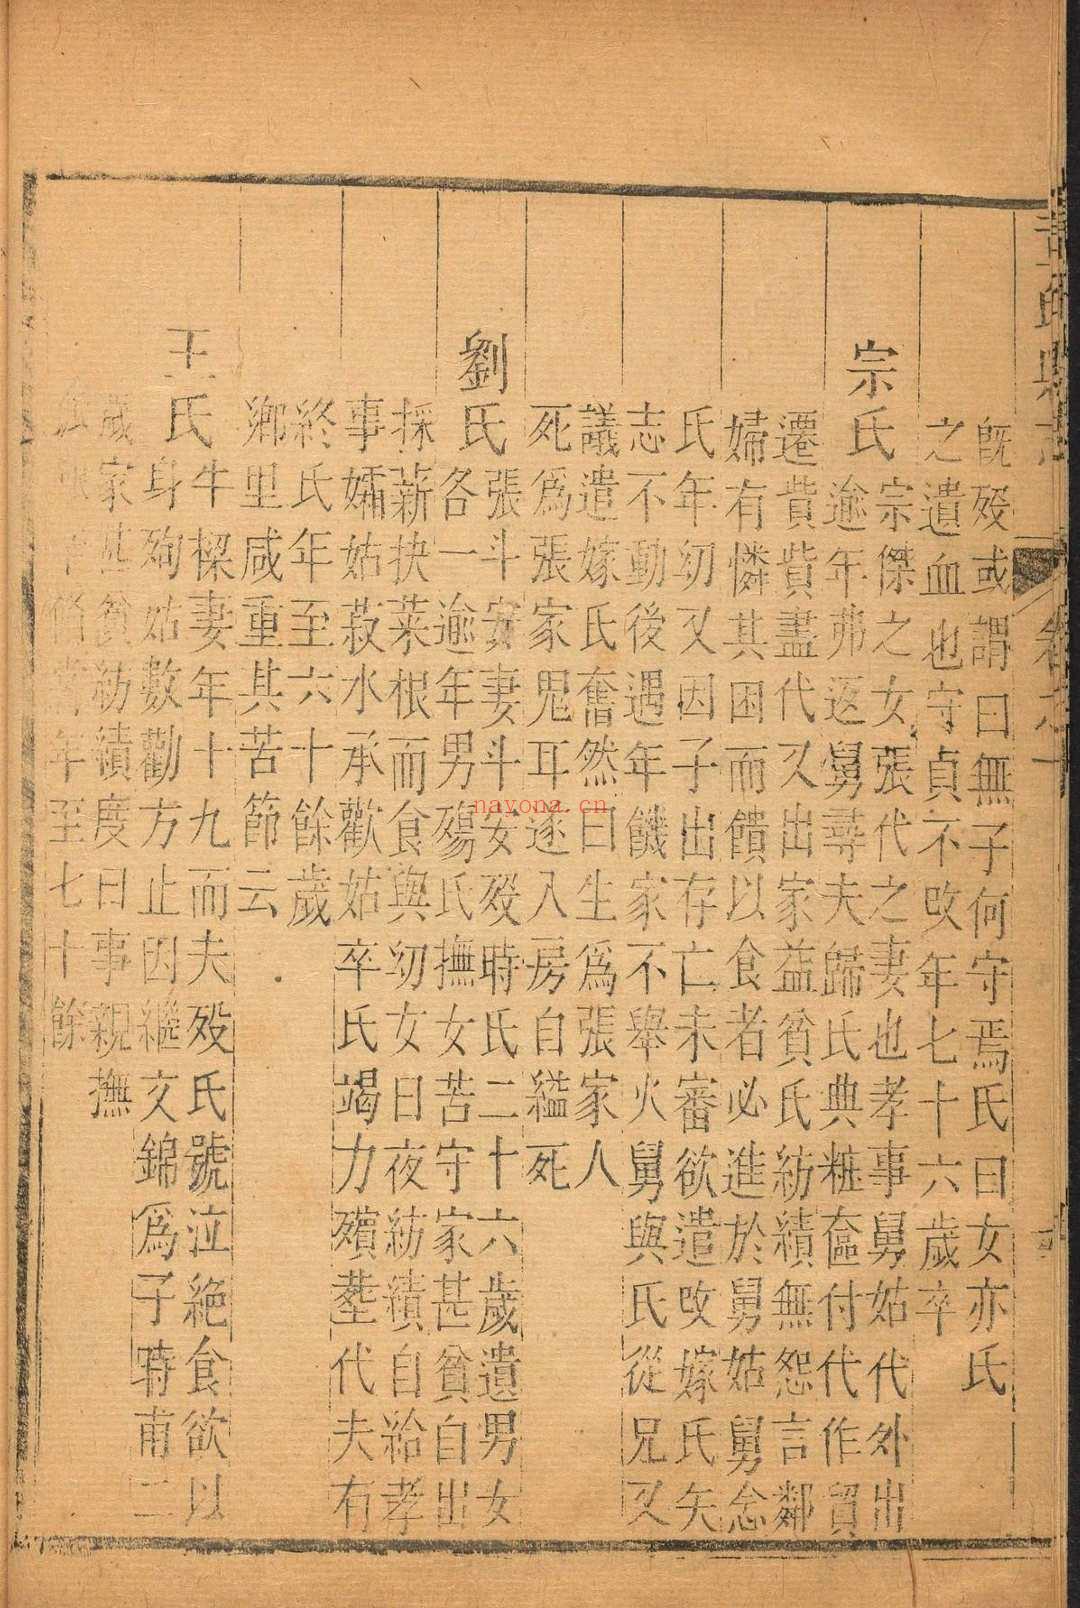 既殁或謂曰無子何守焉氏曰女亦氏
之遺血也守貞不改年七十六歲卒
宗氏
宗傑之女張代之妻也孝事舅姑代外出
逾年弗返舅尋夫歸氏典粧奩付代作貿
遷貲貲盡代又出家益貧氏紡績無怨言鄰
婦有憐其困而饋以食者必進於舅姑舅念
氏年幼又因子出存亡未審欲遣改嫁氏矢
志不動後遇年饑家不舉火舅與氏從兄又
議遣嫁氏奮然曰生爲張家人
死爲張家鬼耳遂入房自縊死
劉氏
張斗安妻斗安殁時氏二十六歲遺男女
各一逾年男殤氏撫女苦守家甚貧自出
採薪抉菜根而食與幼女日夜紡績自給孝
事孀姑菽水承歡姑卒氏竭力殯塟代夫有
終氏年至六十餘歲
鄉里咸重其苦節云
王氏
牛樑妻年十九而夫殁氏號泣絶食欲以
身殉姑數勸方止因繼文錦爲子時甫二
歲家甚貧紡績度日事親撫
年至七十餘
nayona.cn